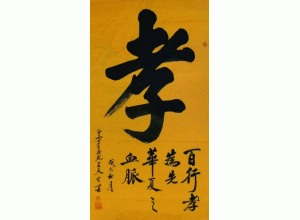 孝
百行孝
為先
華夏之
血脈